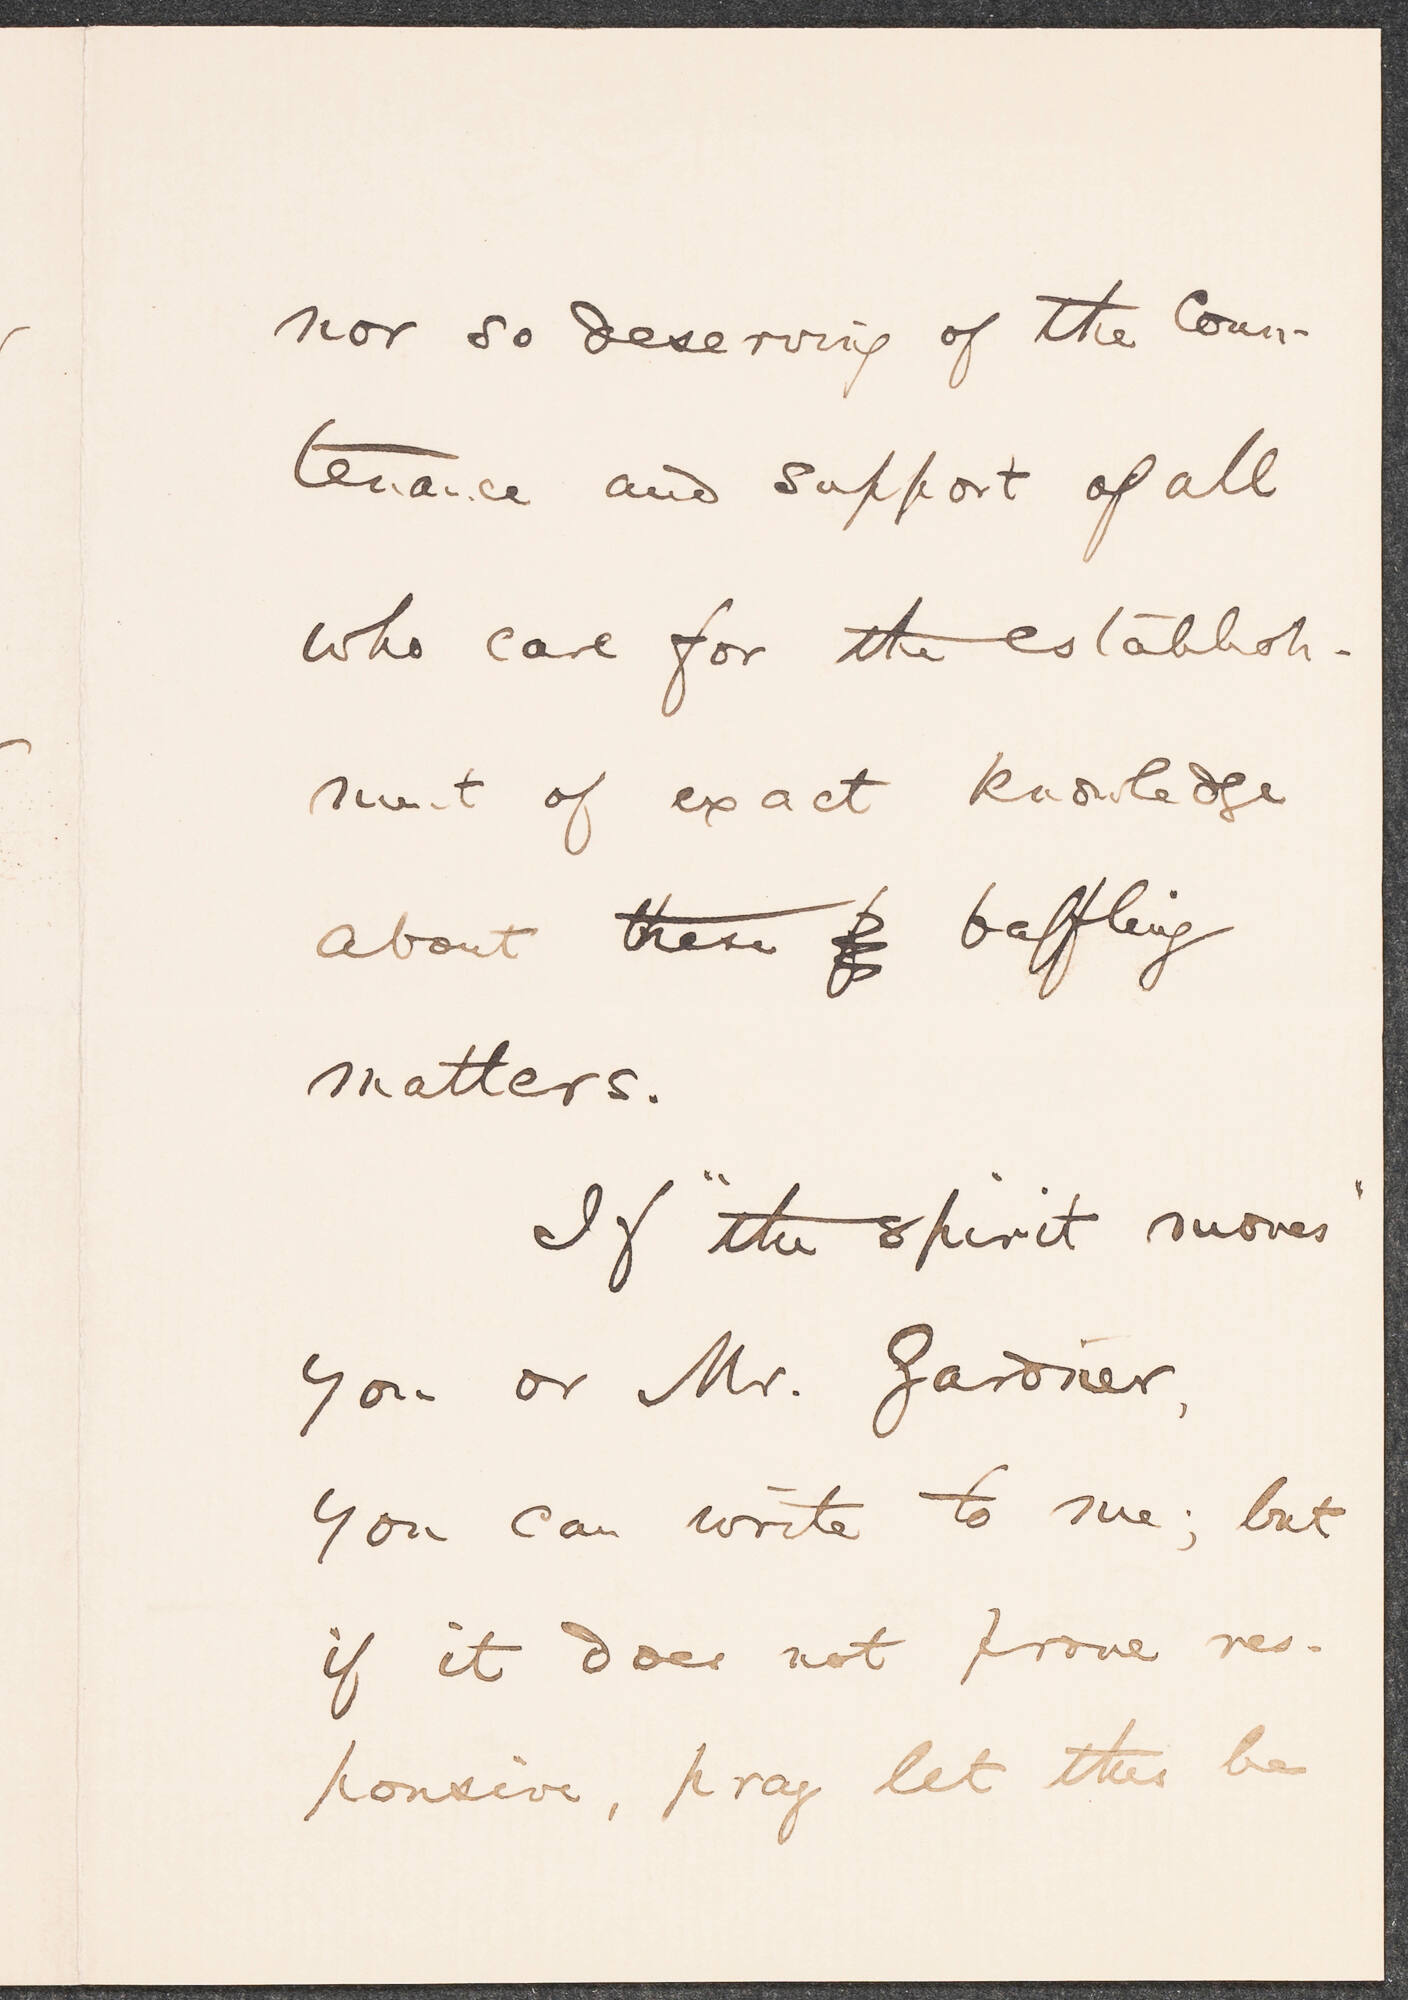 nor so deserving of the Coun-
tenance and support of all
who care for the establish-
ment of exact knowledge
about these baffling
matters.
If "the spirit moves"
you or Mr. Gardner,
you can write to me; but
if it does not prove res-
ponsive, pray let this be